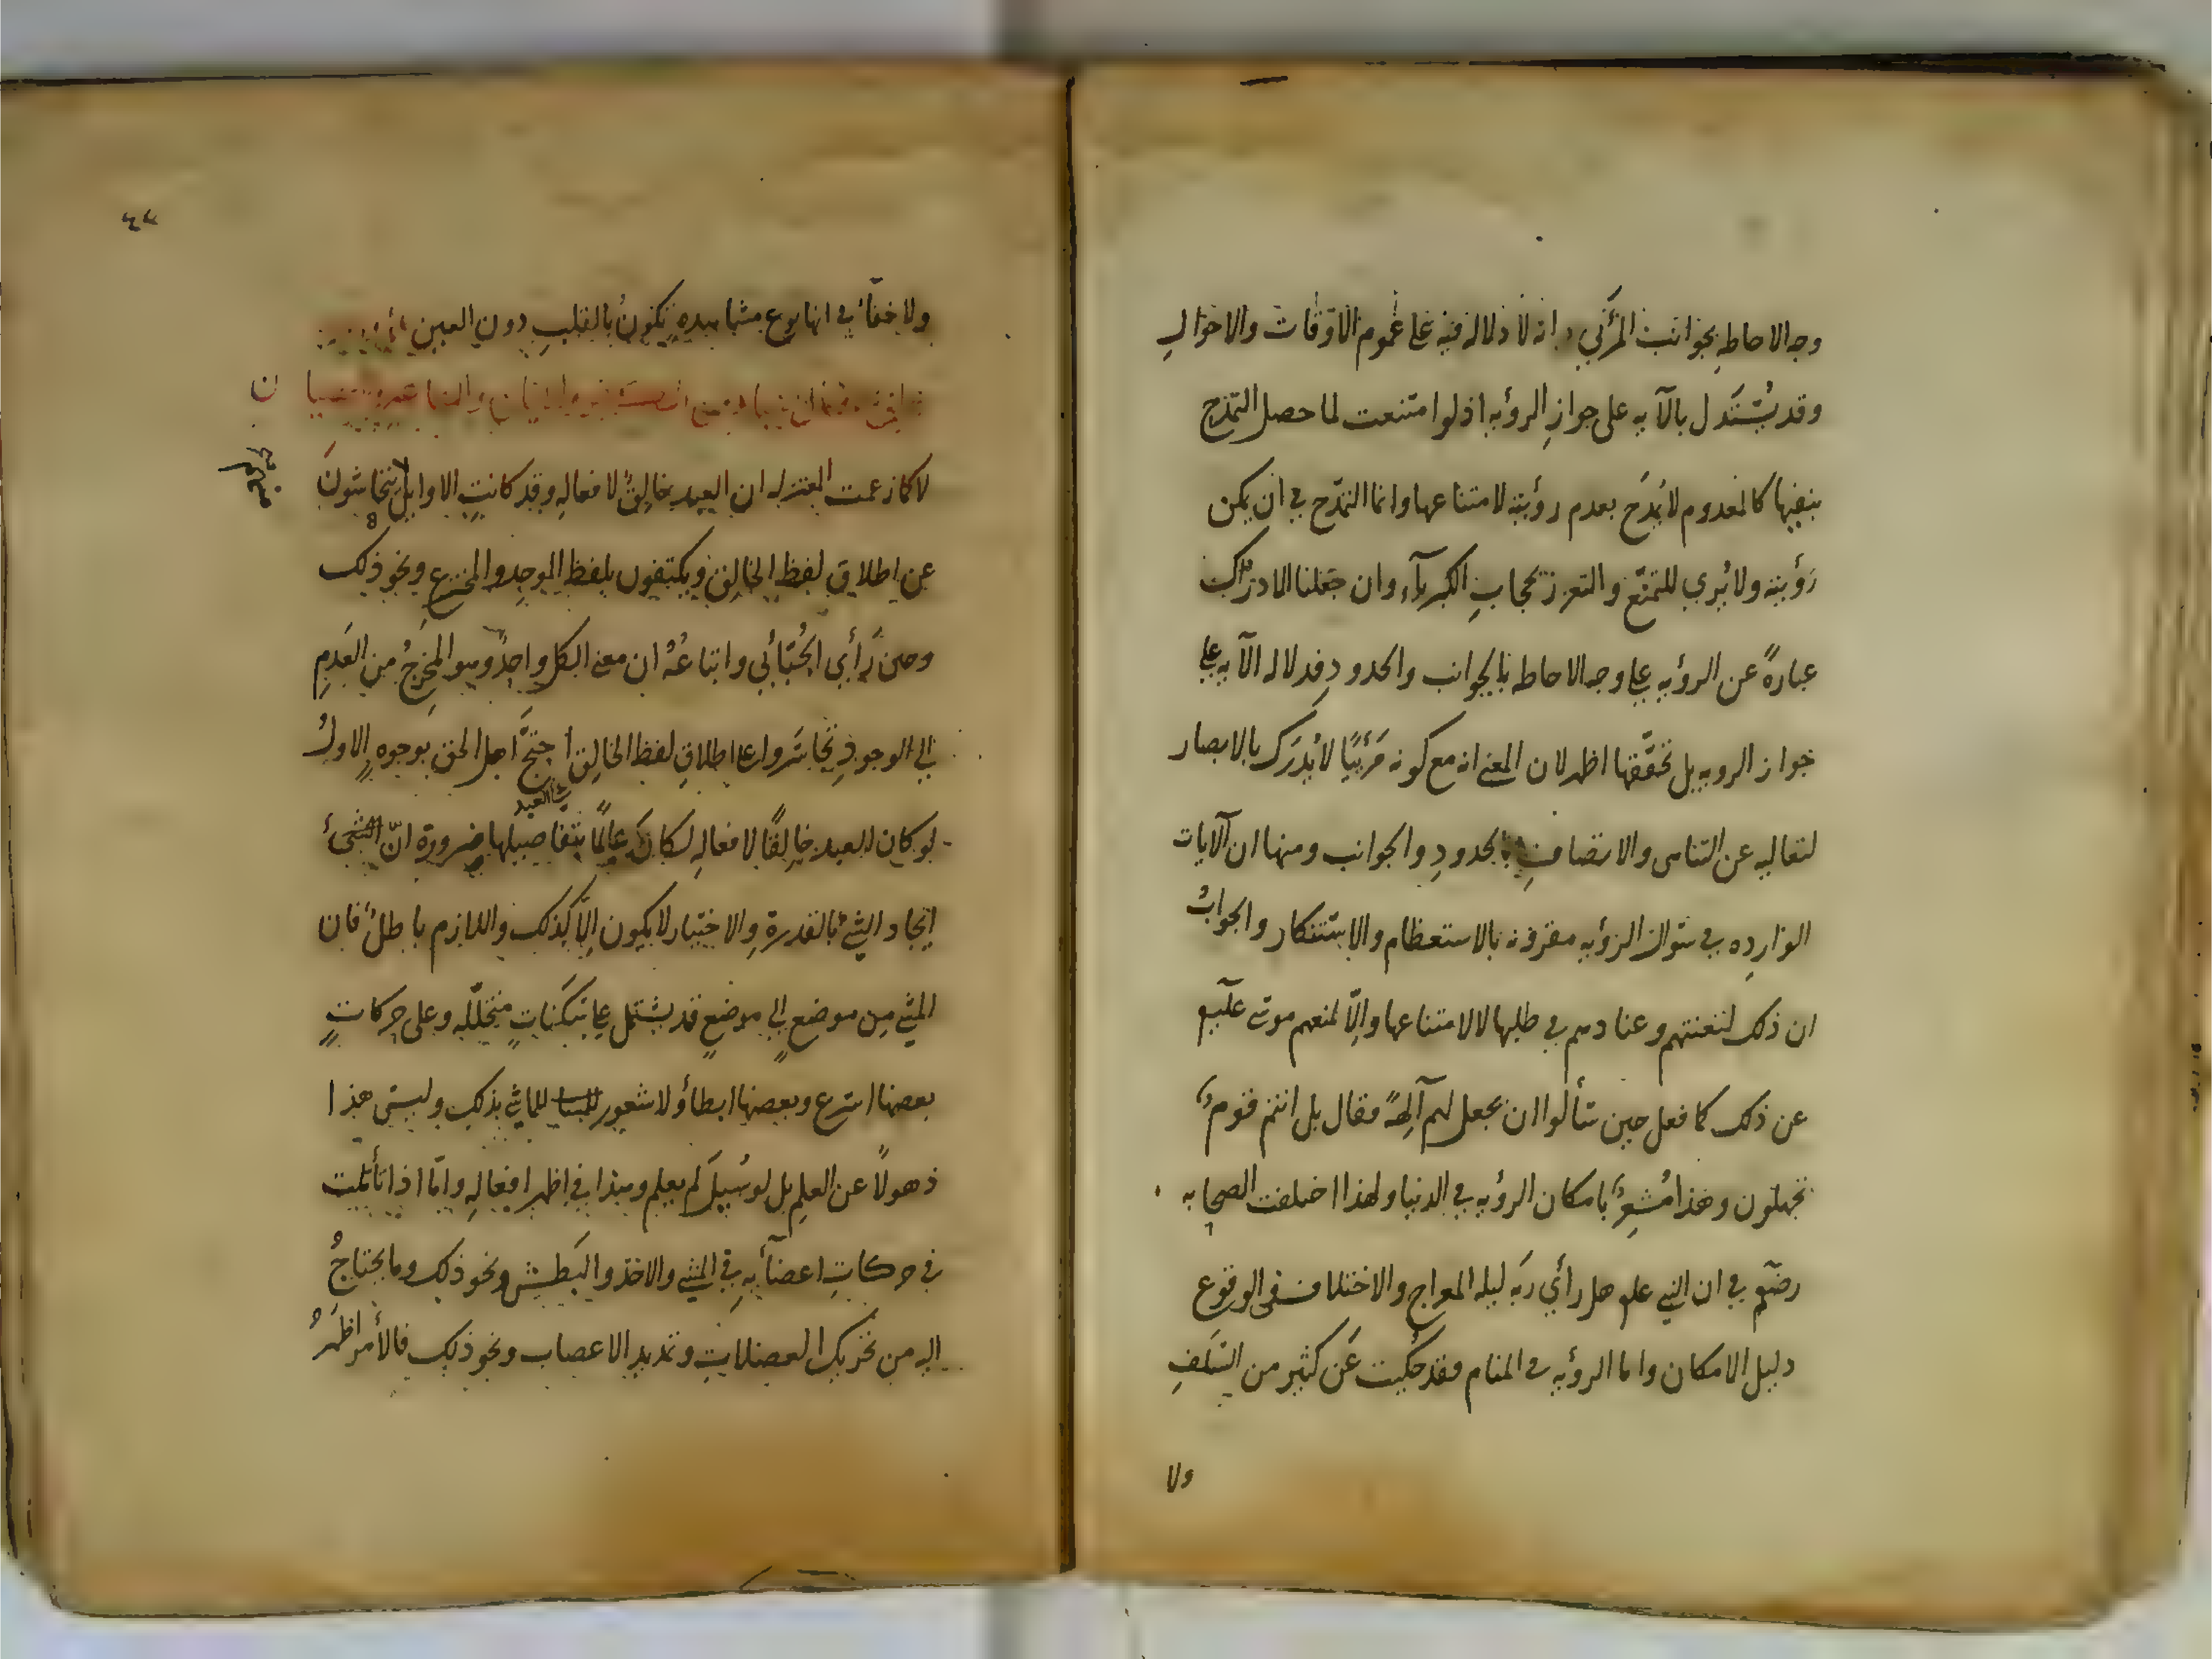 وجه الاحاطه بجوانب المرئي وانه لا دلاله فيه على عموم الاوقات والاحوال
وقد يستدل بالآيه على جواز الرؤيه اذ لو امتنعت لما حصل التمدح
بنفيها كالمعدوم لا يمدح بعدم رؤيته لامتناعها وانما التمدح في ان يمكن
رؤيته ولا يرى للتمنع والتعزز بحجاب الكبريآء وان جعلنا الادراك
عبارةً عن الرؤيه على وجه الاحاطه بالجوانب والحدود فدلاله الآيه على
جواز الرويه بل تحققها اظهر لان المعنى انه مع كونه مرئيًا لا يدرك بالابصار
لتعاليه عن التناهي والاتصاف بالحدود والجوانب ومنها ان الآيات
الوارده في سؤال الرؤيه مقرونه بالاستعظام والاستنكار والجوابُ
ان ذلك لتعنتهم وعنادهم في طلبها لا لامتناعها والّا لمنعهم موسى عليه
عن ذلك كما فعل حين سألوا ان يجعل لهم آلهةً فقال بل انتم قومٌ
تجهلون وهذا مُشعِرٌ بامكان الرؤيه في الدنيا ولهذا اختلفت الصحابه
رضهم في ان النبي علم هل رأي ربه ليله المعراج والاختلاف في الوقوع
دليل الامكان واما الرؤيه في المنام فقد حكيت عن كثير من السلف
ولا
٤٧
ولا خفآء في انها نوع مشاهدهٍ تكونُ بالقلب دون العين
لا كما زعمت المعتزله ان العبد خالقٌ لافعاله وقد كانت الاوايل يتحاشون
عن اطلاق لفظ الخالق ويكتفون بلفظ الموجد والمخترع ونحو ذلك
وحين رأي الجُبّائي واتباعُهُ ان معنى الكل واحدٌ وهو المخرجُ من العدم
الى الوجود تجاسروا على اطلاق لفظ الخالق احتجّ اهل الحق بوجوهٍ الاولُ
لو كان العبد خالقًا لافعاله لكان عالمًا بتفاصيلها ضرورة انّ
ايجاد الشئ بالقدرة والاختيار لا يكون الّا كذلك واللازم باطلٌ فان
المشي من موضعٍ الى موضعٍ قد يشتمل على سكناتٍ متخلّله وعلى حركاتٍ
بعضها اسرع وبعضها ابطأ ولا شعور للماشي بذلك وليس هذا
ذهولًا عن العلم بل لو سُيل لم يعلم وهذا في اظهر افعاله وامّا اذا تأملت
في حركات اعضآئه في المشي والاخذ والبطش ونحو ذلك وما يحتاجُ
اليه من تحريك العضلات وتمديد الاعصاب ونحو ذلك فالأمر اظهرُ